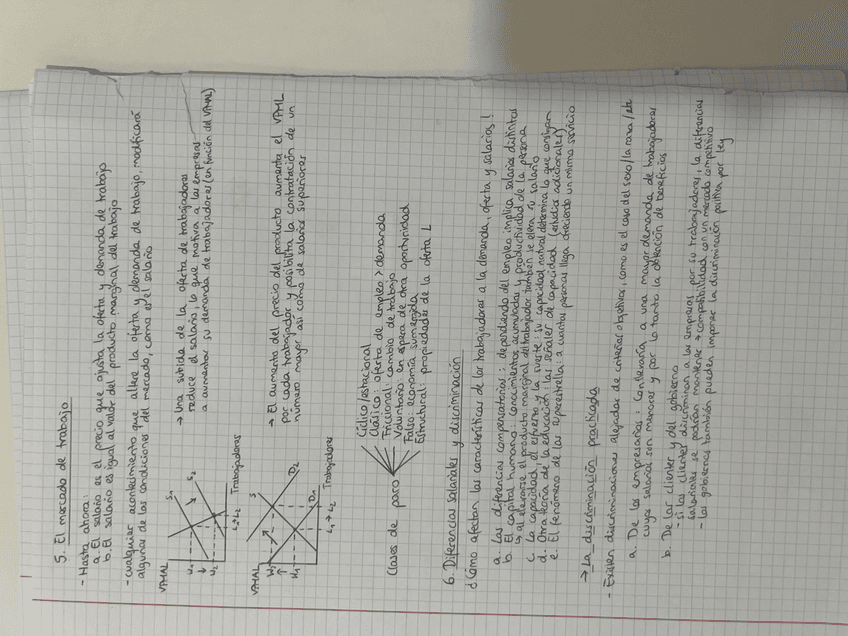 5. El mercado de trabajo
- Hasta ahora:
a. El salario es el precio que ajusta la oferta y demanda de trabajo
b. El salario es igual al valor del producto marginal del trabajo
- Cualquier acontecimiento que altere la oferta y demanda de trabajo, modificará
algunas de las condiciones del mercado, como es el salario
VPMAL
S1
S2
W1
↓
W2
L1→L2
Trabajadores
→ Una subida de la oferta de trabajadores
reduce el salario, lo que motiva a las empresas
a aumentar su demanda de trabajadores (en función del VPMAL)
VPMAL
S
D2
W2
↑
W1
D1
L1→L2
Trabajadores
→ El aumento del precio del producto aumenta el VPML
por cada trabajador y posibilita la contratación de un
número mayor así como de salarios superiores
Clases de paro
Cíclico/estacional
Clásico: oferta de empleo > demanda
Friccional: cambio de trabajo
Voluntario: en espera de otra oportunidad
Falso: economía sumergida
Estructural: propiedades de la oferta L
6. Diferencias salariales y discriminación
¿Cómo afectan las características de los trabajadores a la demanda, oferta y salarios?
a. Las diferencias compensatorias: dependiendo del empleo implica salarios distintos
b. El capital humano: conocimientos acumulados y productividad de la persona
→ al elevarse el producto marginal del trabajador también se eleva su salario
c. La capacidad, el esfuerzo y la suerte: su capacidad natural determina lo que consigan
d. Otra teoría de la educación: las señales de capacidad (estudios adicionales)
e. El fenómeno de las superestrellas: a cuantas personas llega ofreciendo un mismo servicio
→ La discriminación practicada
- Existen discriminaciones alejadas de criterios objetivos, como es el caso del sexo/la raza/etc
a. De los empresarios: conllevaría a una mayor demanda de trabajadores
cuyos salarios son menores y por lo tanto la obtención de beneficios
b. De los clientes y del gobierno
- si los clientes discriminan a las empresas por sus trabajadores, las diferencias
salariales se podrían mantener → compatibilidad con un mercado competitivo
- Los gobiernos también pueden imponer la discriminación positiva por ley